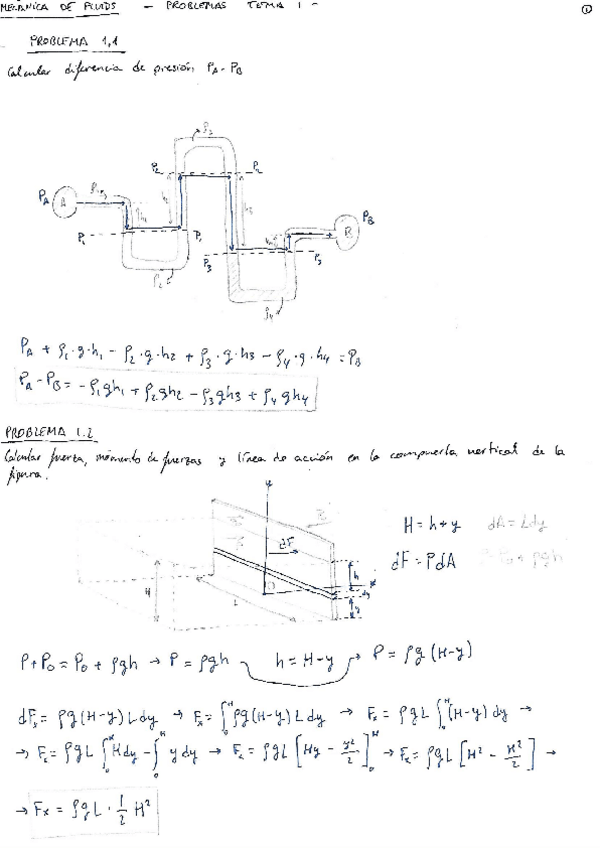 MECÁNICA DE FLUIDS - PROBLEMAS TEMA 1 -
①
PROBLEMA 1,1
Calcular diferencia de presión, PA - PB
ρ3
P2 P2
PA A ρ1 h1 h2 h3 B PB
P1 P1
P3 P3
ρ2
ρ4
PA + ρ1·g·h1 - ρ2·g·h2 + ρ3·g·h3 - ρ4·g·h4 = PB
PA - PB = -ρ1gh1 + ρ2gh2 - ρ3gh3 + ρ4gh4
PROBLEMA 1.2
Calcular fuerza, momento de fuerzas y línea de acción en la compuerta vertical de la
figura.
y
dF
H
h
O
L
x
y
H = h + y dA = Ldy
dF = PdA P = P0 + ρgh
P + P0 = P0 + ρgh → P = ρgh h = H-y → P = ρg(H-y)
dFx = ρg(H-y)Ldy → Fx = ∫₀ᴴ ρg(H-y)Ldy → Fx = ρgL ∫₀ᴴ (H-y)dy →
→ Fx = ρgL ∫₀ᴴ Hdy - ∫₀ᴴ ydy → Fx = ρgL [Hy - y²/2]₀ᴴ → Fx = ρgL [H² - H²/2] →
→ Fx = ρgL · 1/2 H²